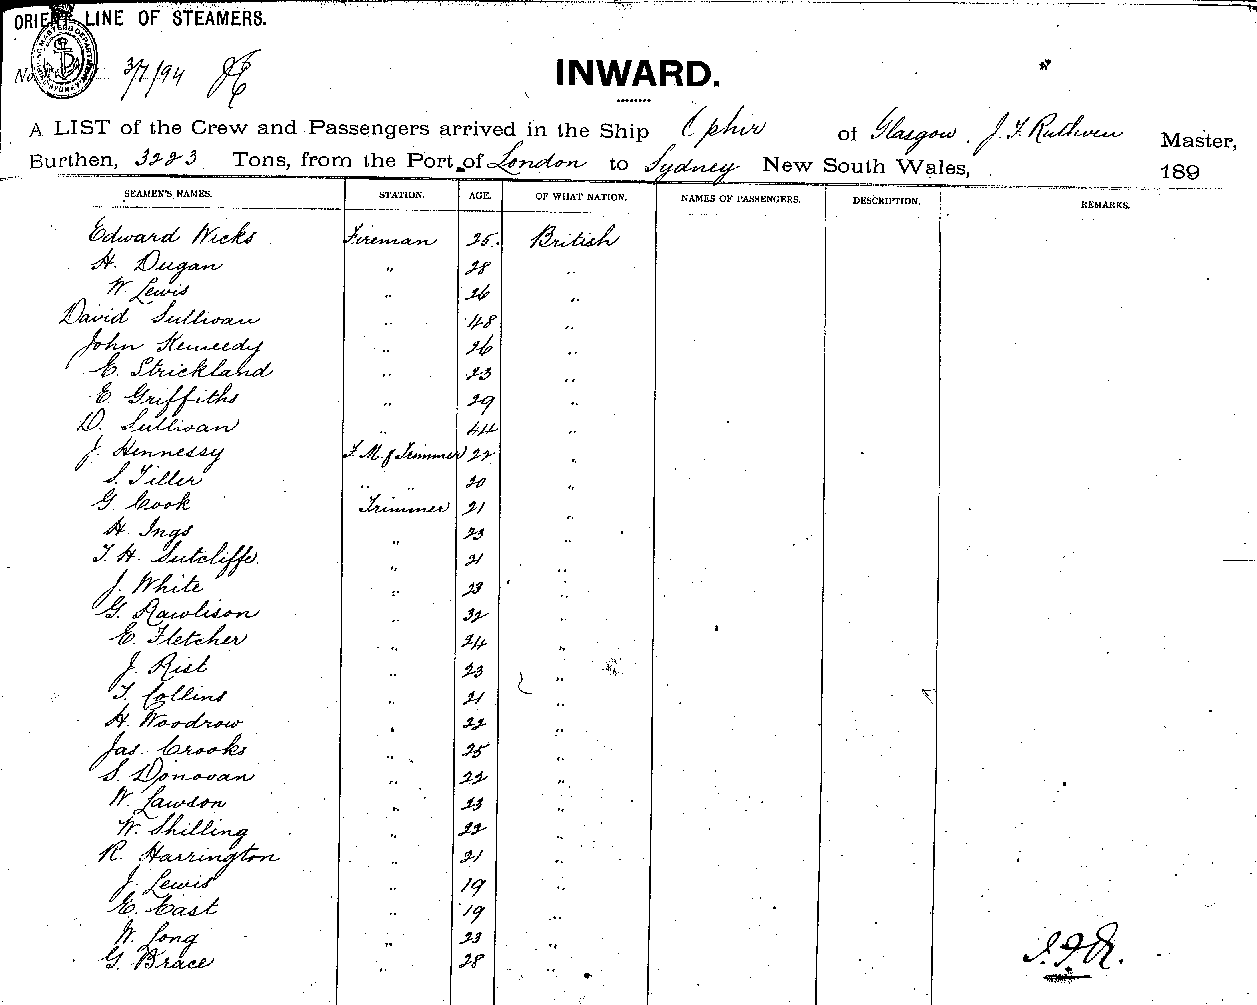 ORIENT LINE OF STEAMERS.
No. 3/7/94
INWARD.
A LIST of the Crew and Passengers arrived in the Ship Ophir of Glasgow, J. F. Ruthven Master,
Burthen, 3223 Tons, from the Port of London to Sydney New South Wales, 189
SEAMEN'S NAMES. STATION. AGE. OF WHAT NATION. NAMES OF PASSENGERS. DESCRIPTION. REMARKS.
Edward Wicks Fireman 25 British
H. Dugan " 28 "
W. Lewis " 26 "
David Sullivan " 48 "
John Kennedy " 26 "
E. Strickland " 23 "
E. Griffiths " 29 "
D. Sullivan " 44 "
J. Hennessy F. M. & Trimmer 22 "
S. Tiller " " 20 "
G. Cook Trimmer 21 "
H. Ings " 23 "
T. H. Sutcliffe " 21 "
J. White " 23 "
G. Rawlison " 32 "
E. Fletcher " 24 "
J. Rist " 23 "
T. Collins " 21 "
H. Woodrow " 22 "
Jas. Crooks " 25 "
S. Donovan " 22 "
W. Lawson " 23 "
W. Shilling " 22 "
R. Harrington " 21 "
J. Lewis " 19 "
E. East " 19 "
W. Long " 23 "
G. Brace " 28 "
J.F.R.